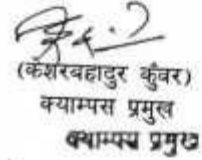 (केशरबहादुर कुँवर)
क्याम्पस प्रमुख
क्याम्पस प्रमुख